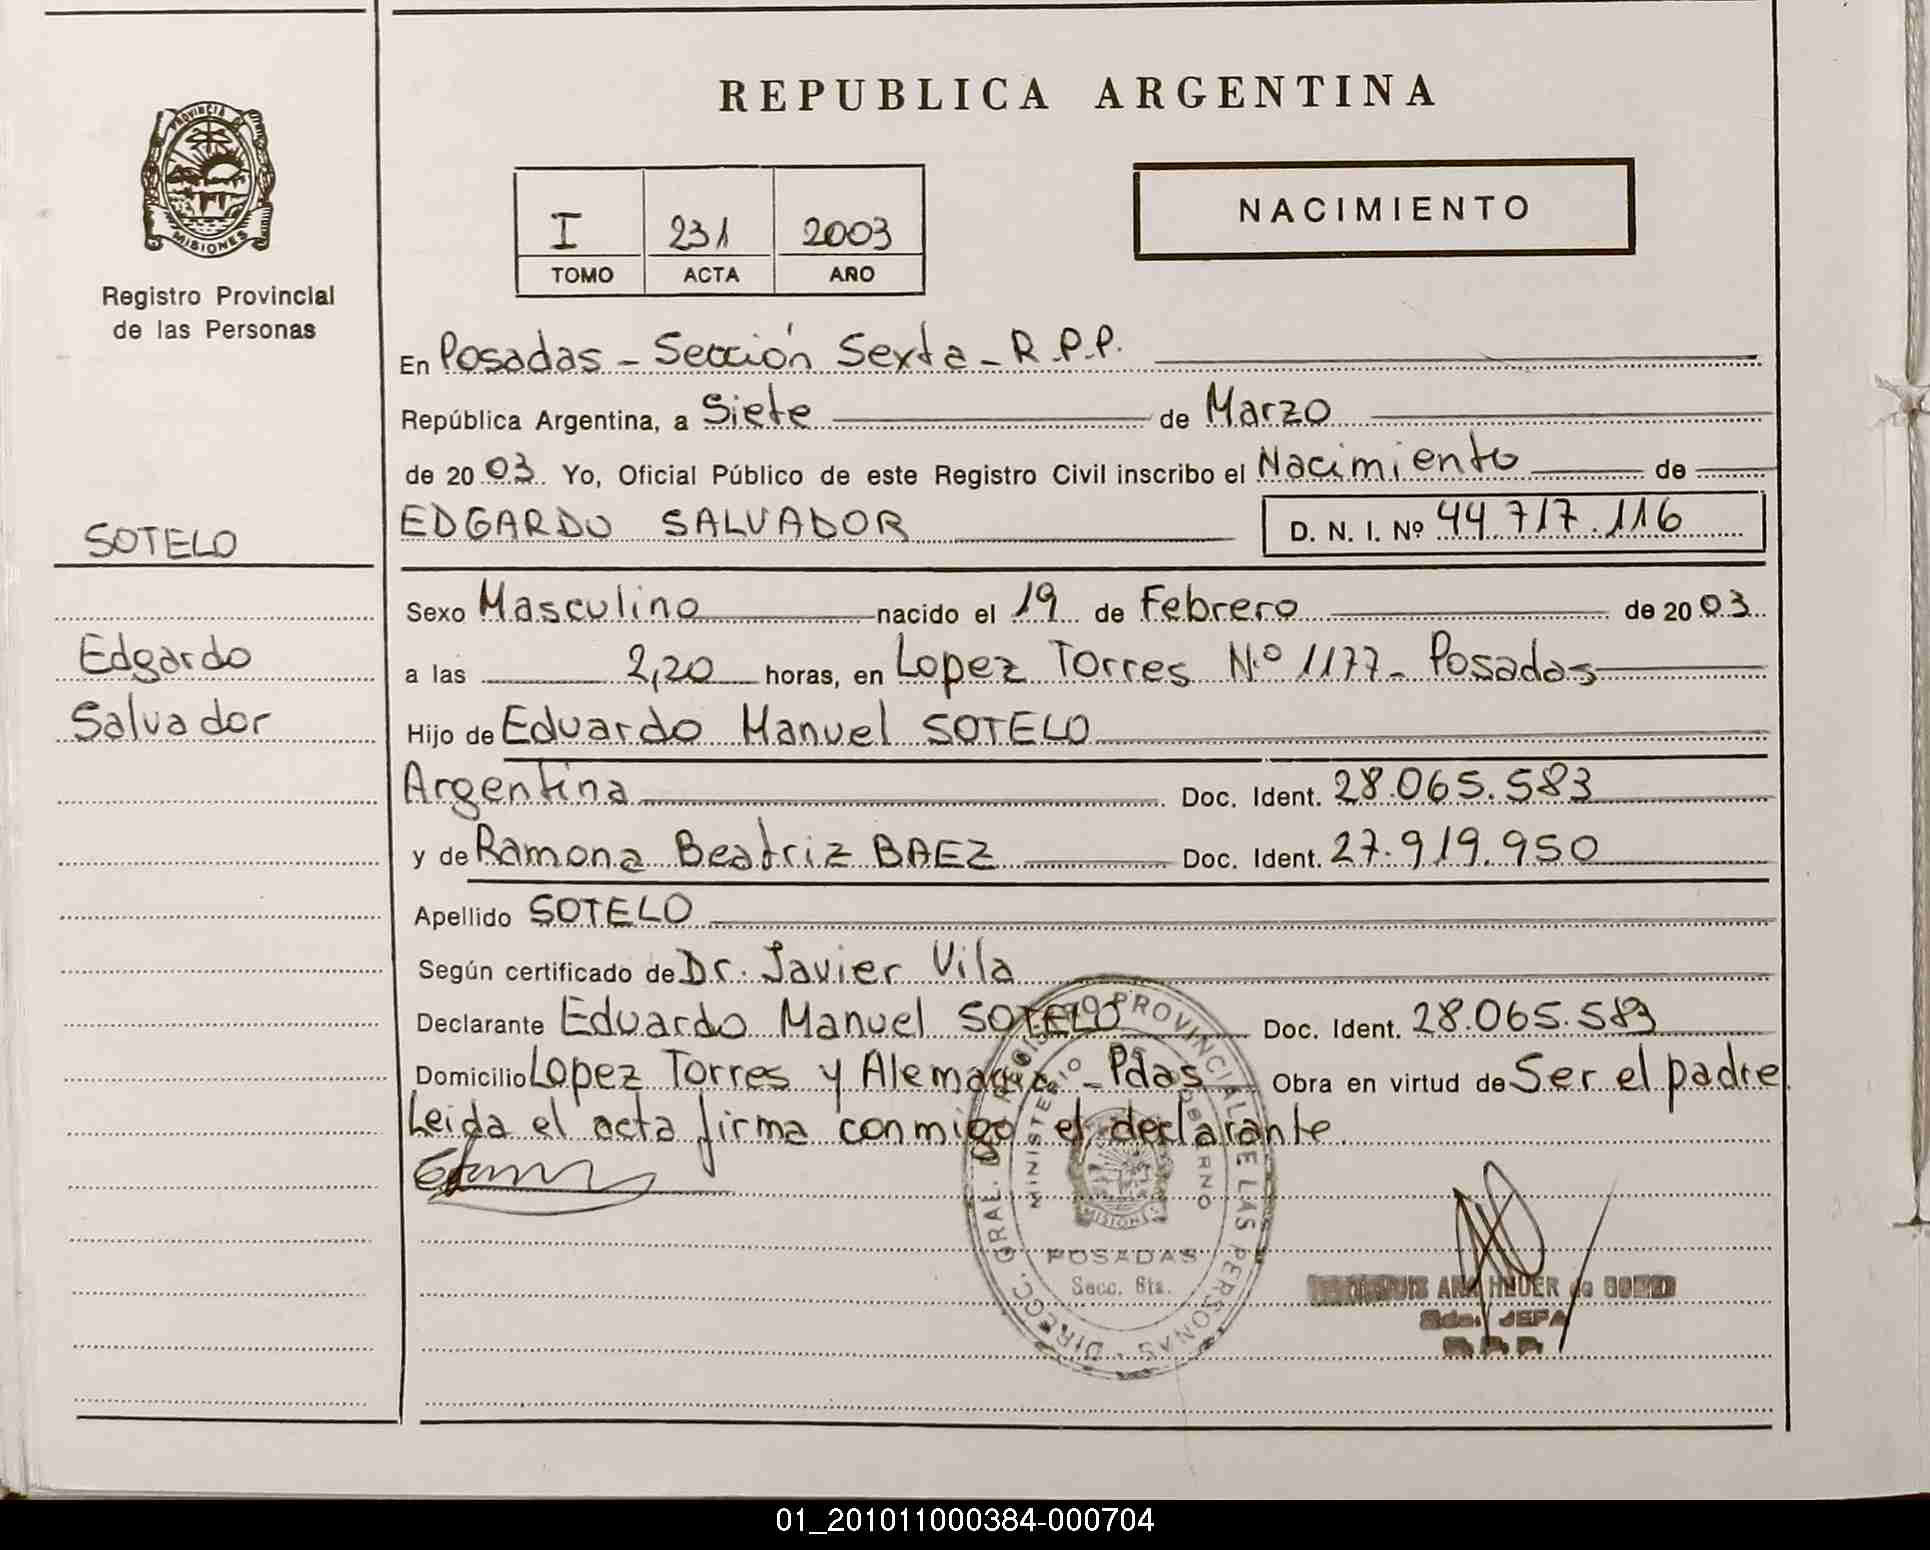 REPUBLICA ARGENTINA
PROVINCIA DE
MISIONES
Registro Provincial
de las Personas
I 231 2003
TOMO ACTA AÑO
NACIMIENTO
En Posadas - Sección Sexta - R.P.P.
República Argentina, a Siete de Marzo
de 20 03 Yo, Oficial Público de este Registro Civil inscribo el Nacimiento de
EDGARDO SALVADOR D. N. I. Nº 44.717.116
SOTELO
Edgardo
Salvador
Sexo Masculino nacido el 19 de Febrero de 20 03
a las 2,20 horas, en Lopez Torres Nº 1177 - Posadas
Hijo de Eduardo Manuel SOTELO
Argentina Doc. Ident. 28.065.583
y de Ramona Beatriz BAEZ Doc. Ident. 27.919.950
Apellido SOTELO
Según certificado de Dr. Javier Vila
Declarante Eduardo Manuel SOTELO Doc. Ident. 28.065.583
Domicilio Lopez Torres y Alemania - Pdas Obra en virtud de Ser el padre
Leida el acta firma conmigo el declarante
DIRECC. GRAL. DE REGISTRO PROVINCIAL DE LAS PERSONAS
MINISTERIO DE GOBIERNO
MISIONES
POSADAS
Secc. 6ta.
ANA HAUER de
JEFA
01_201011000384-000704